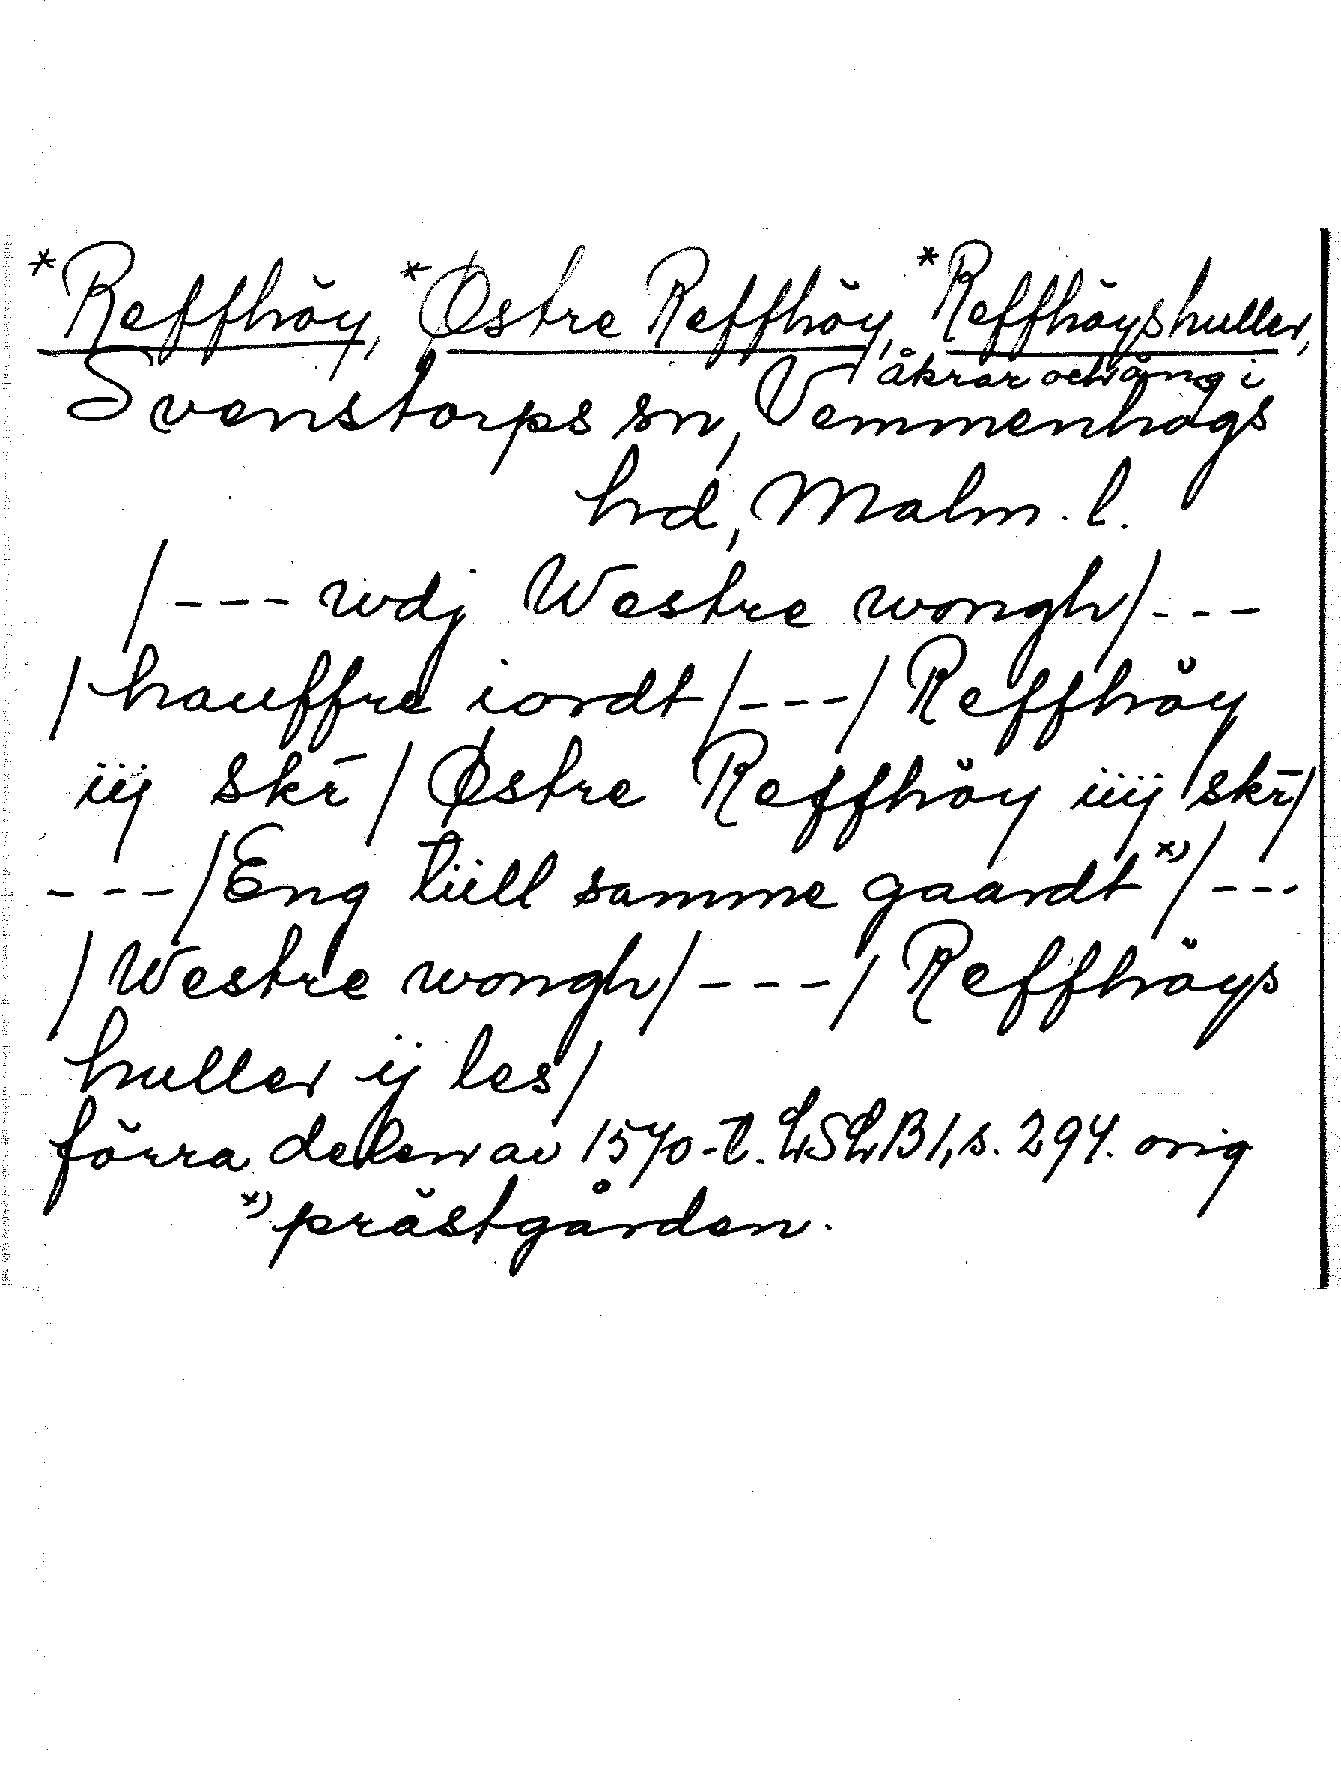 *Reffhöy, *Østre Reffhöy, *Reffhöyshuller,
åkrar och äng i
Svenstorps sn, Vemmenhögs
hd, Malm. l.
/--- wdj Westre wongh/---
/hauffre iordt/---/Reffhöy
iij skr̄/Østre Reffhöy iiij skr̄/
---/Eng tiill samme gaardt *)/---
/Westre wongh/---/Reffhöys
huller ij les/
förra delen av 1570-t. LSLB 1, s. 294. orig
*) prästgården.